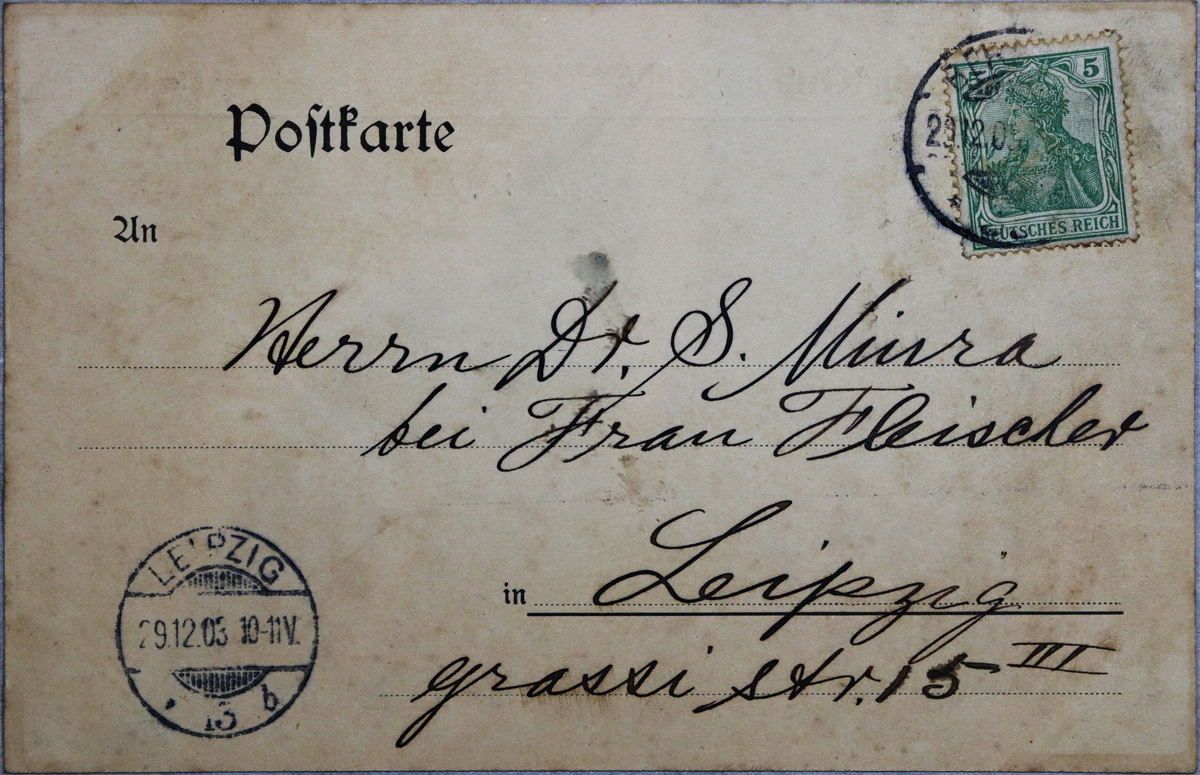 Postkarte
5
12.03
DEUTSCHES REICH
An
Herrn Dr. S. Miura
bei Frau Fleischer
in Leipzig
grassi str. 15 III
LEIPZIG
29.12.03 10-11V.
* 13 b